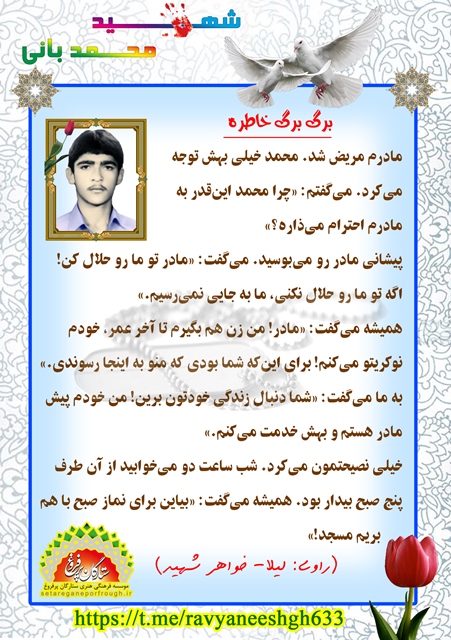 شهید
محمد بانی
برگ برگ خاطره
مادرم مریض شد. محمد خیلی بهش توجه
می‌کرد. می‌گفتم: «چرا محمد این‌قدر به
مادرم احترام می‌ذاره؟»
پیشانی مادر رو می‌بوسید. می‌گفت: «مادر تو ما رو حلال کن!
اگه تو ما رو حلال نکنی، ما به جایی نمی‌رسیم.»
همیشه می‌گفت: «مادر! من زن هم بگیرم تا آخر عمر، خودم
نوکریتو می‌کنم! برای این‌که شما بودی که منو به اینجا رسوندی.»
به ما می‌گفت: «شما دنبال زندگی خودتون برین! من خودم پیش
مادر هستم و بهش خدمت می‌کنم.»
خیلی نصیحتمون می‌کرد. شب ساعت دو می‌خوابید از آن طرف
پنج صبح بیدار بود. همیشه می‌گفت: «بیاین برای نماز صبح با هم
بریم مسجد!»
(راوی: لیلا- خواهر شهید)
ستارگان پرفروغ
موسسه فرهنگی هنری ستارگان پرفروغ
setareganeporfrough.ir
https://t.me/ravyaneeshgh633